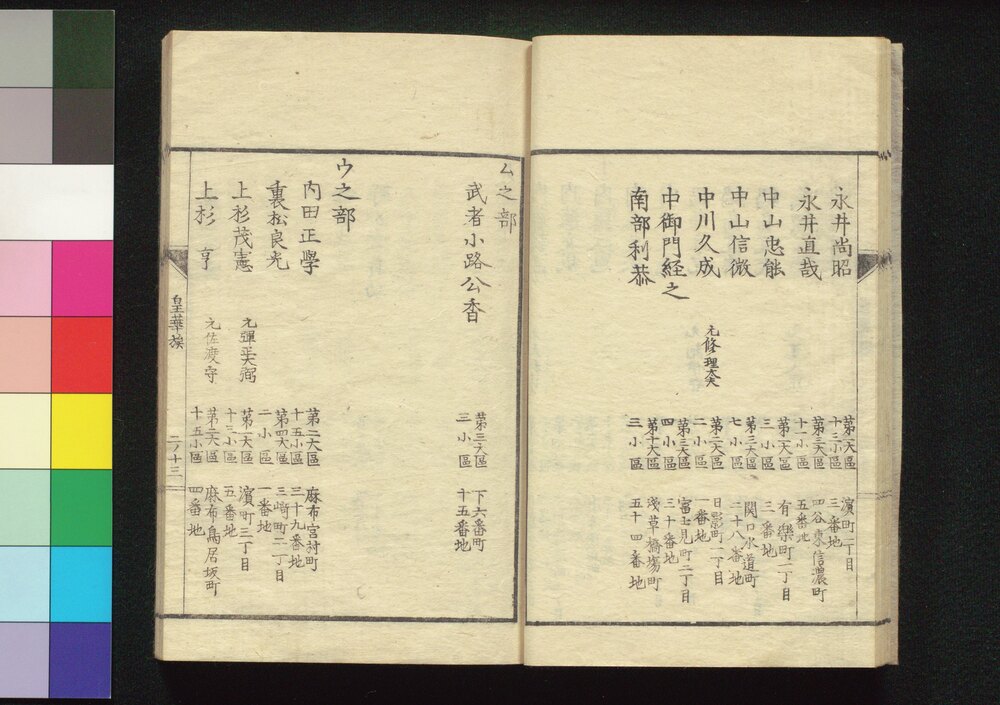 永井尚昭
第一大區
十三小區
濵町二丁目
三番地
永井直哉
第三大區
十二小區
四谷東信濃町
五番地
中山忠能
第一大區
三小區
有樂町一丁目
三番地
中山信徴
第三大區
七小區
関口水道町
二十八番地
中川久成
元修理大夫
第二大區
二小區
日影町一丁目
一番地
中御門経之
第三大區
四小區
富士見町二丁目
三十番地
南部利恭
第十大區
三小區
淺草橋塲町
五十四番地
ム之部
武者小路公香
第三大區
三小區
下六番町
十五番地
ウ之部
内田正學
第二大區
十五小區
麻布宮村町
三十九番地
裏松良光
第四大區
二小區
三﨑町二丁目
一番地
上杉茂憲
元彈正大弼
第一大區
十三小區
濵町三丁目
五番地
上杉 亨
元佐渡守
第二大區
十五小區
麻布鳥居坂町
四番地
皇華族
二ノ十三